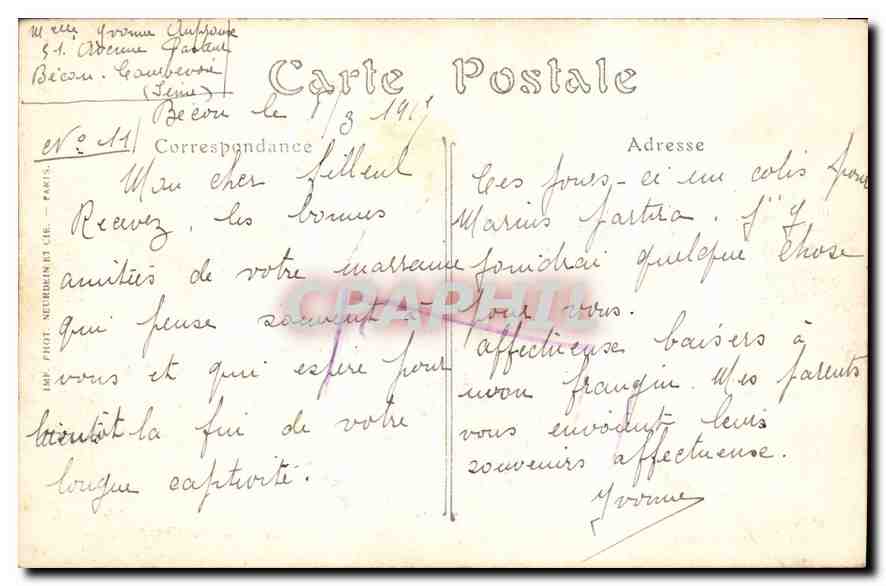 Melle Yvonne
51. Avenue Pasteur
Bécon. Courbevoie
(Seine)
Carte Postale
Bécon le 1/3 191
No 11
Correspondance
Mon cher filleul
Recevez, les bonnes
amitiés de votre marraine
qui pense souvent à
vous et qui espère pour
bientôt la fin de votre
longue captivité.
Adresse
Ces jours-ci un colis pour
Marius partira. J'y
joindrai quelque chose
pour vous.
affectueux baisers à
mon frangin. Mes parents
vous envoient leurs
souvenirs affectueuse.
Yvonne
IMP. PHOT. NEURDEIN ET CIE. — PARIS.
CRAPHIL